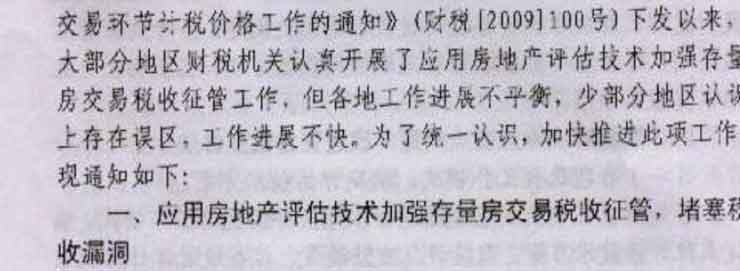 交易环节计税价格工作的通知》(财税[2009]100号)下发以来，
大部分地区财税机关认真开展了应用房地产评估技术加强存量
房交易税收征管工作，但各地工作进展不平衡，少部分地区认识
上存在误区，工作进展不快。为了统一认识，加快推进此项工作
现通知如下：
一、应用房地产评估技术加强存量房交易税收征管，堵塞税
收漏洞